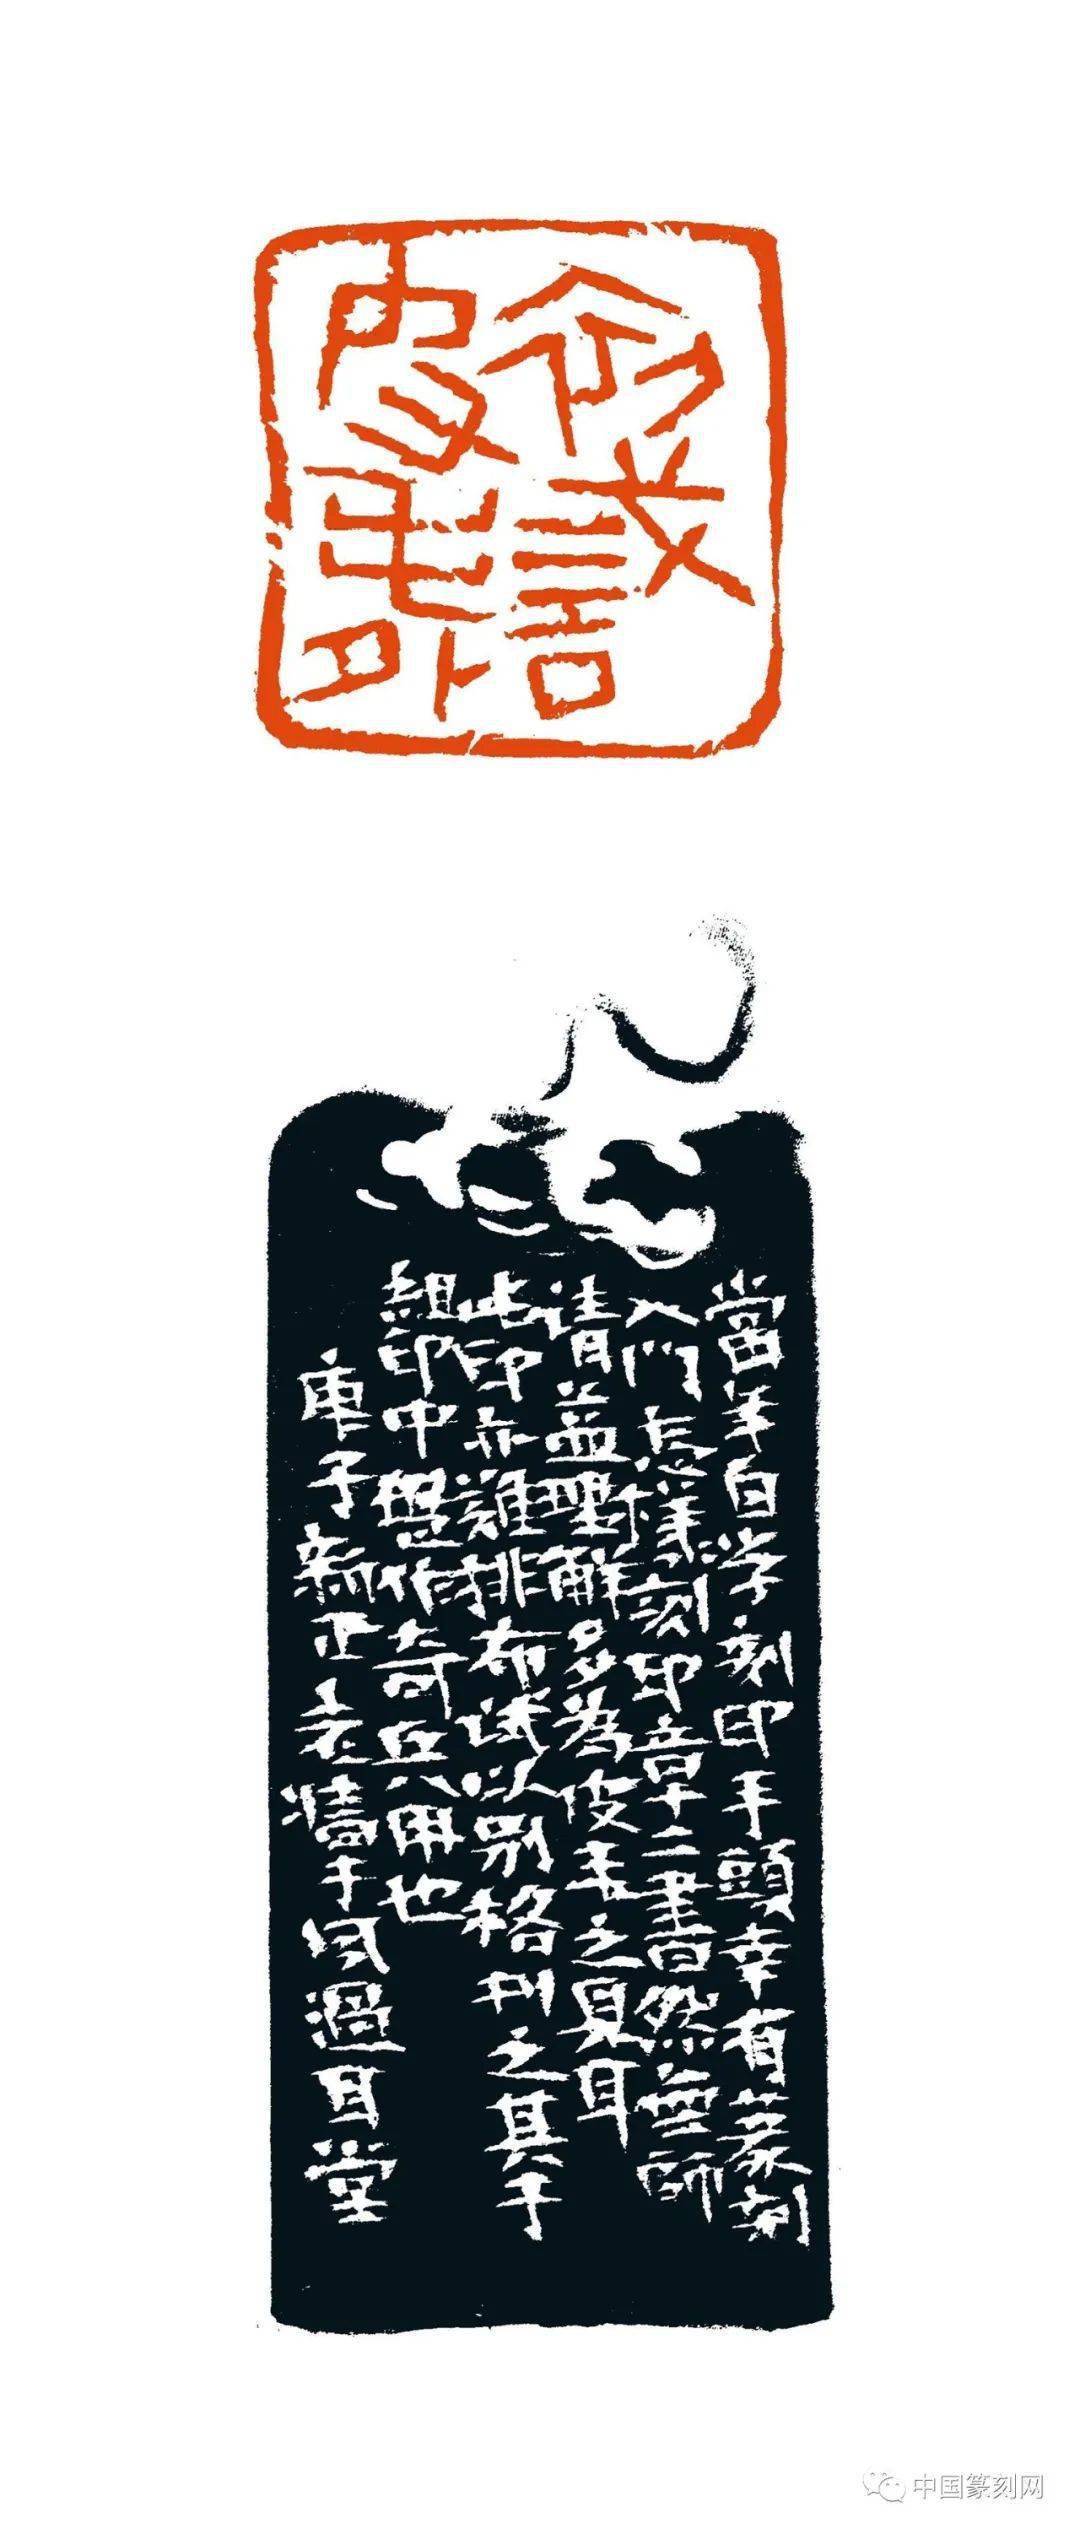 當年自学刻印手頭幸有篆刻
入門怎樣刻印章二書然無師
请益理解多為皮毛之見耳
此印亦難排布试以别格刊之其于
組印中堪作奇兵用也
庚子新正老墙于风過耳堂
中国篆刻网